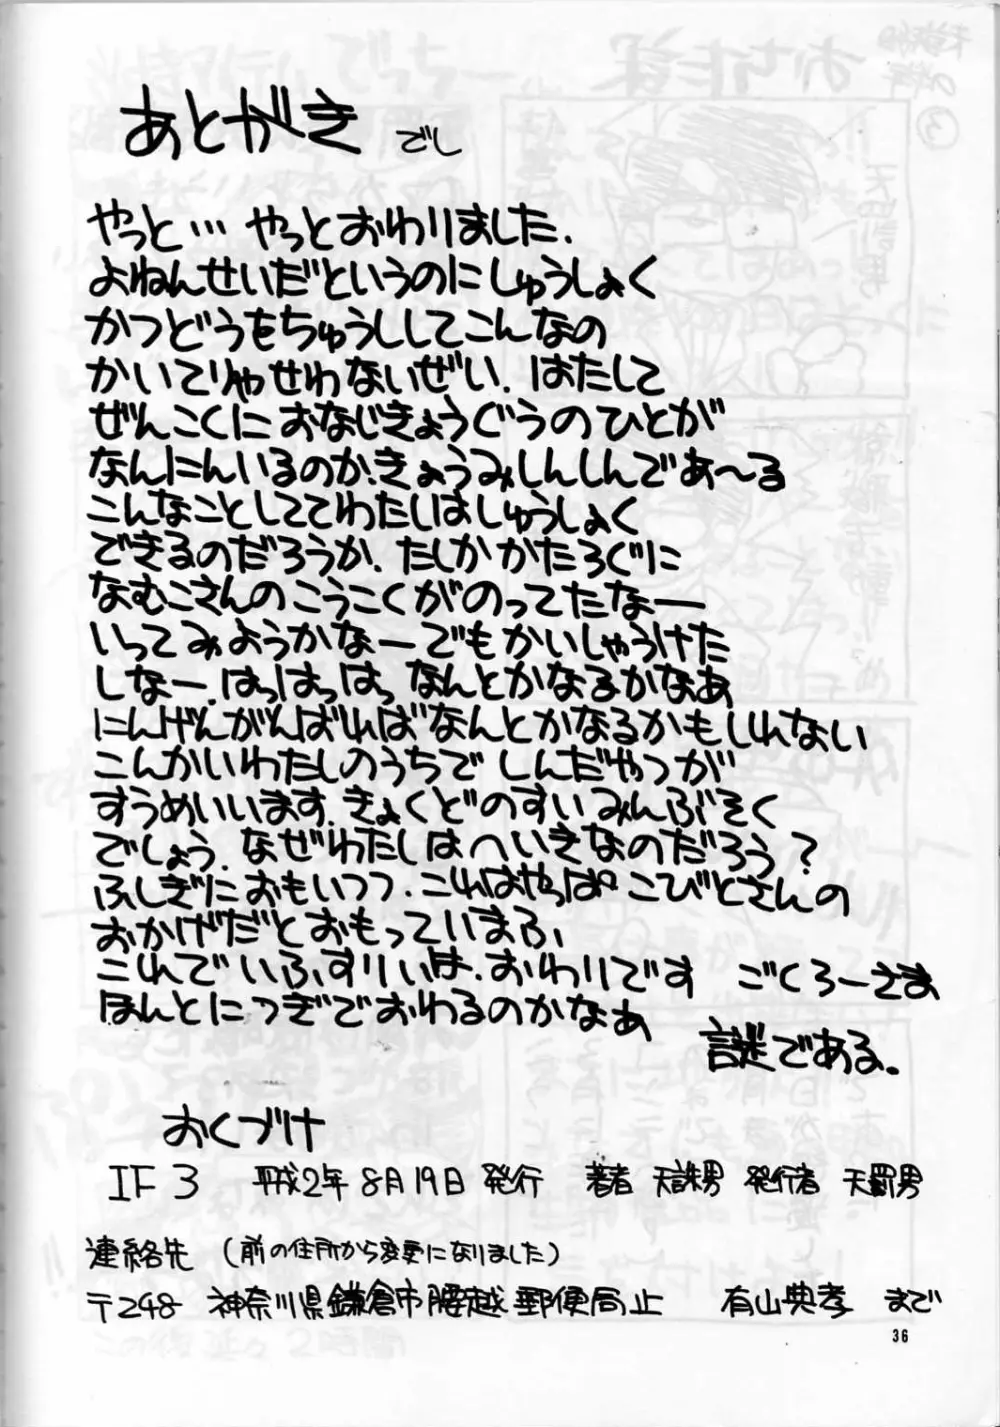 あとがき でし
やっと… やっとおわりました.
よねんせいだというのにしゅうしょく
かつどうをちゅうししてこんなの
かいてりゃせわないぜい. はたして
ぜんこくにおなじきょうぐうのひとが
なんにんいるのか.きょうみしんしんであ〜る
こんなことしててわたしはしゅうしょく
できるのだろうか. たしかかたろぐに
なむこさんのこうこくがのってたなー
いってみようかなーでもかいしゃうけた
しなー. はっはっはっ なんとかなるかなあ
にんげんがんばればなんとかなるかもしれない
こんかいわたしのうちでしんだやつが
すうめいいます.きょくどのすいみんぶそく
でしょう. なぜわたしはへいきなのだろう?
ふしぎにおもいつつ.これはやっぱ こびとさんの
おかげだとおもっていまふ
これでいふすりぃは.おわりです ごくろーさま
ほんとにつぎでおわるのかなぁ
謎である。
おくづけ
IF3 平成2年8月19日 発行 著者 天誅男 発行者 天罰男
連絡先 (前の住所から変更になりました)
〒248 神奈川県鎌倉市腰越郵便局止 有山典孝 まで
36